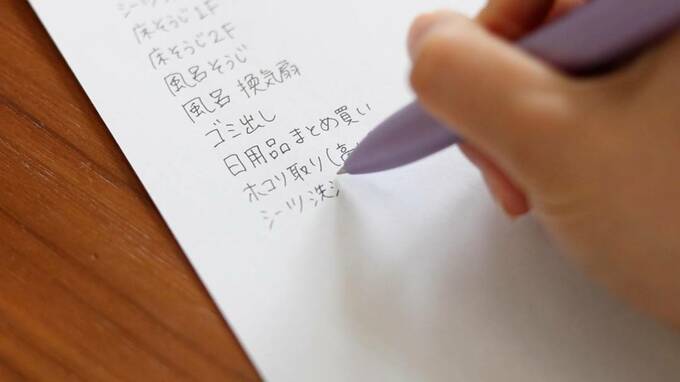 シーツ
床そうじ1F
床そうじ2F
風呂そうじ
風呂 換気扇
ゴミ出し
日用品まとめ買い
ホコリ取り(高
シーツ洗